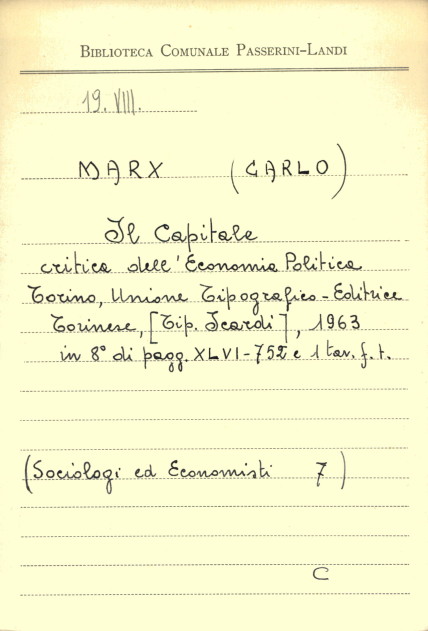 BIBLIOTECA COMUNALE PASSERINI-LANDI
19. VIII.
MARX (CARLO)
Il Capitale
critica dell'Economia Politica
Torino, Unione Tipografico-Editrice
Torinese, [Tip. Scardi], 1963
in 8° di pagg. XLVI-752 e 1 tav. f. t.
(Sociologi ed Economisti 7)
C